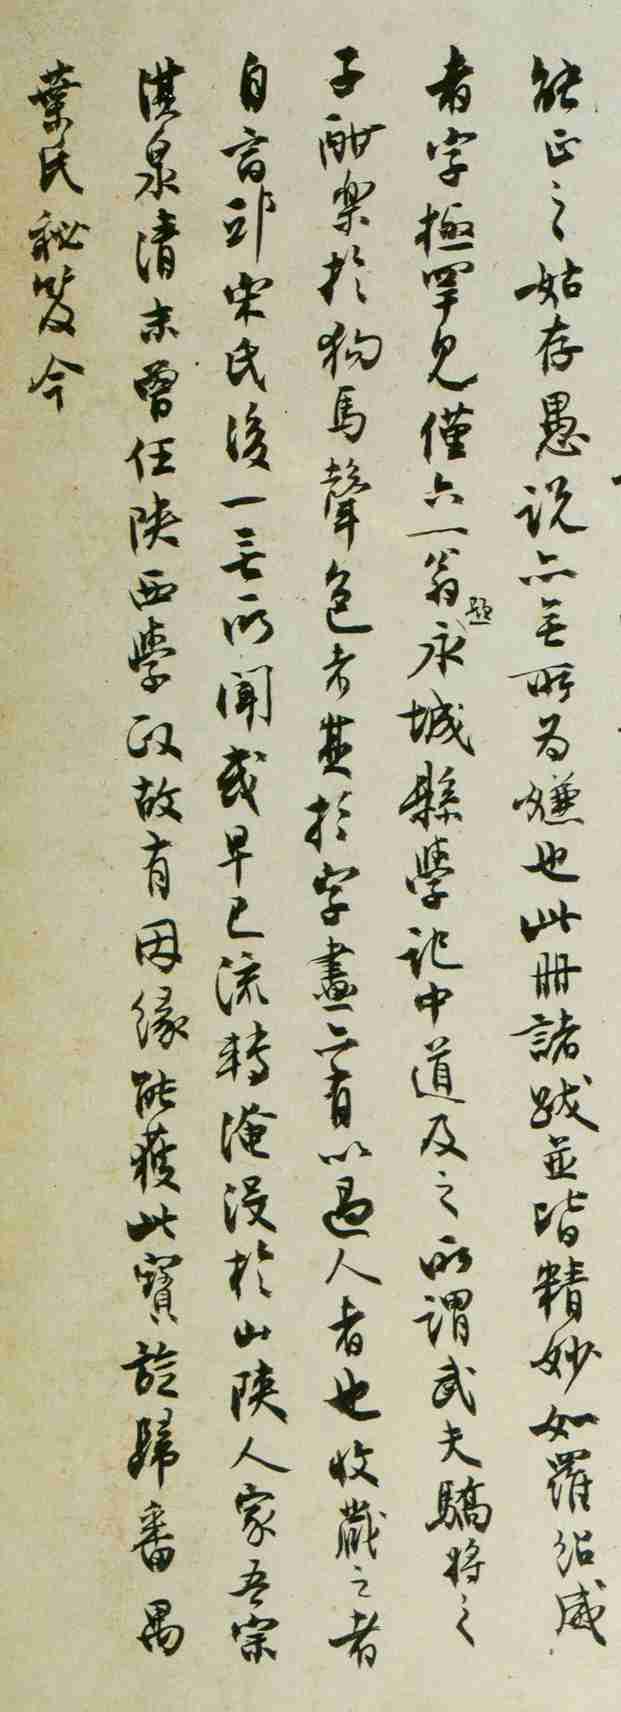 能正之姑存愚说亦无所为嫌也此册諸跋並皆精妙如羅紹威
者字極罕見僅六一翁題永城縣學記中道及之所謂武夫驕将之
子酣樂於狗馬聲色者其於字畫亦有以過人者也收藏之者
自言邵宋氏後一无所闻或早已流轉淹没於山陕人家吾宗
淇泉清末曾任陕西學政故有因缘能獲此寶旋歸番禺
葉氏秘笈今